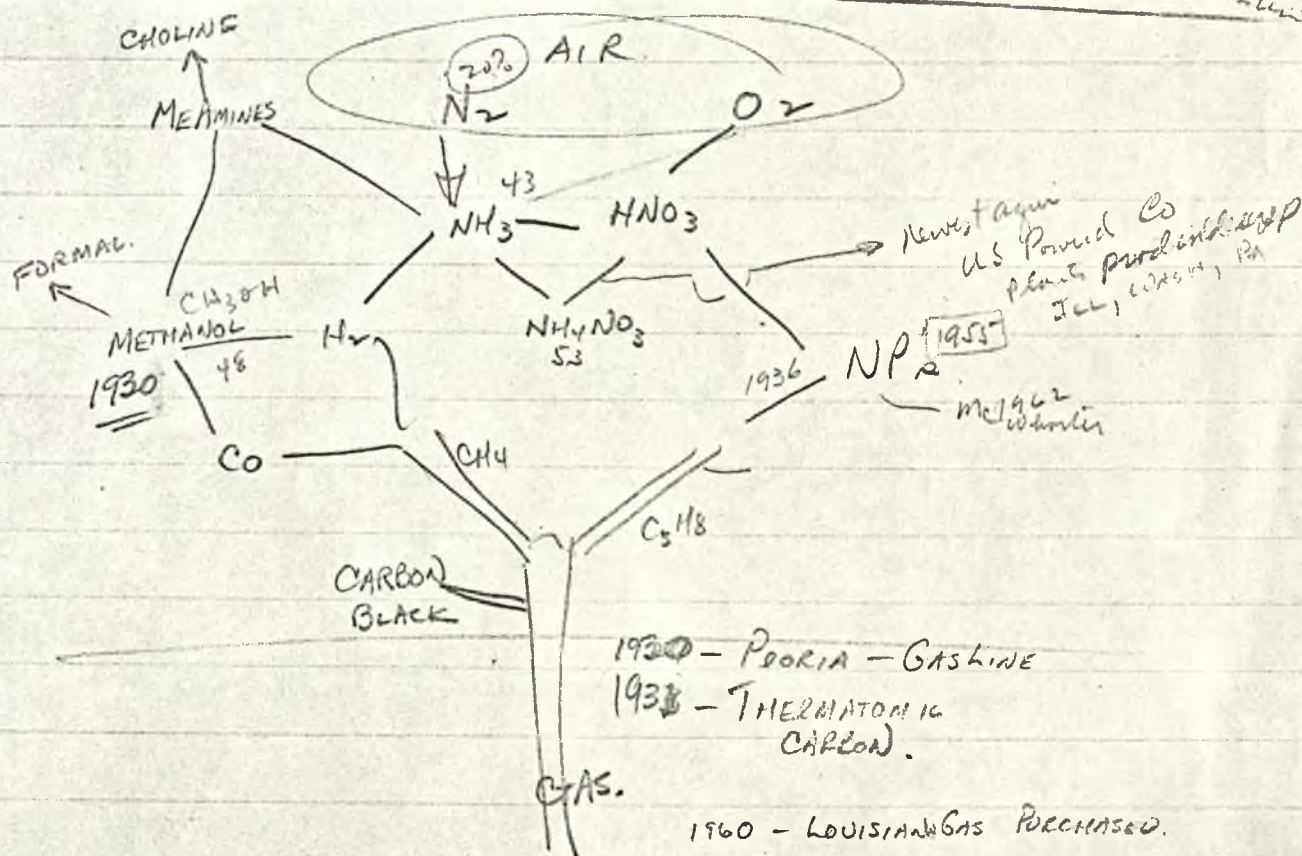 CHOLINE
20% AIR
N2
O2
MEAMINES
43
NH3
HNO3
US Powder Co
plants
ILL, WASH, PA
FORMAL.
CH3OH
METHANOL
H2
48
1930
NH4NO3
53
1955
NPs
1936
1962
CO
CH4
C3H8
CARBON
BLACK
1930 - PEORIA - GASLINE
1931 - THERMATOMIC
CARBON.
GAS.
1960 - LOUISIANA GAS PURCHASED.